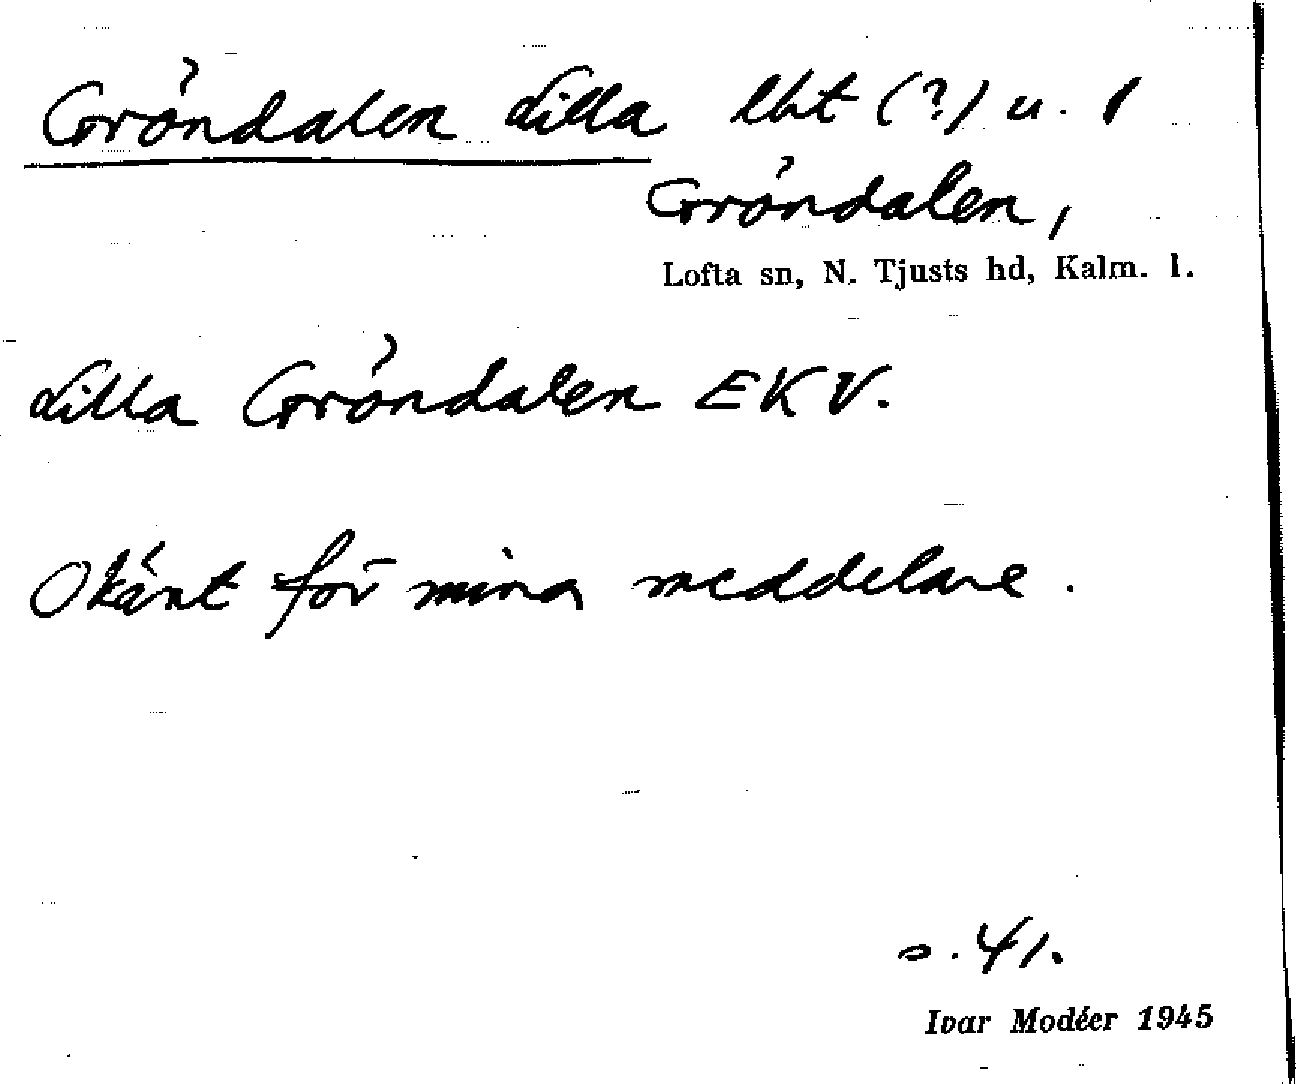 Gröndalen Lilla lht (?) u. 1
Gröndalen,
Lofta sn, N. Tjusts hd, Kalm. l.
Lilla Gröndalen EKV.
Okänt för mina meddelare.
s. 41.
Ivar Modéer 1945